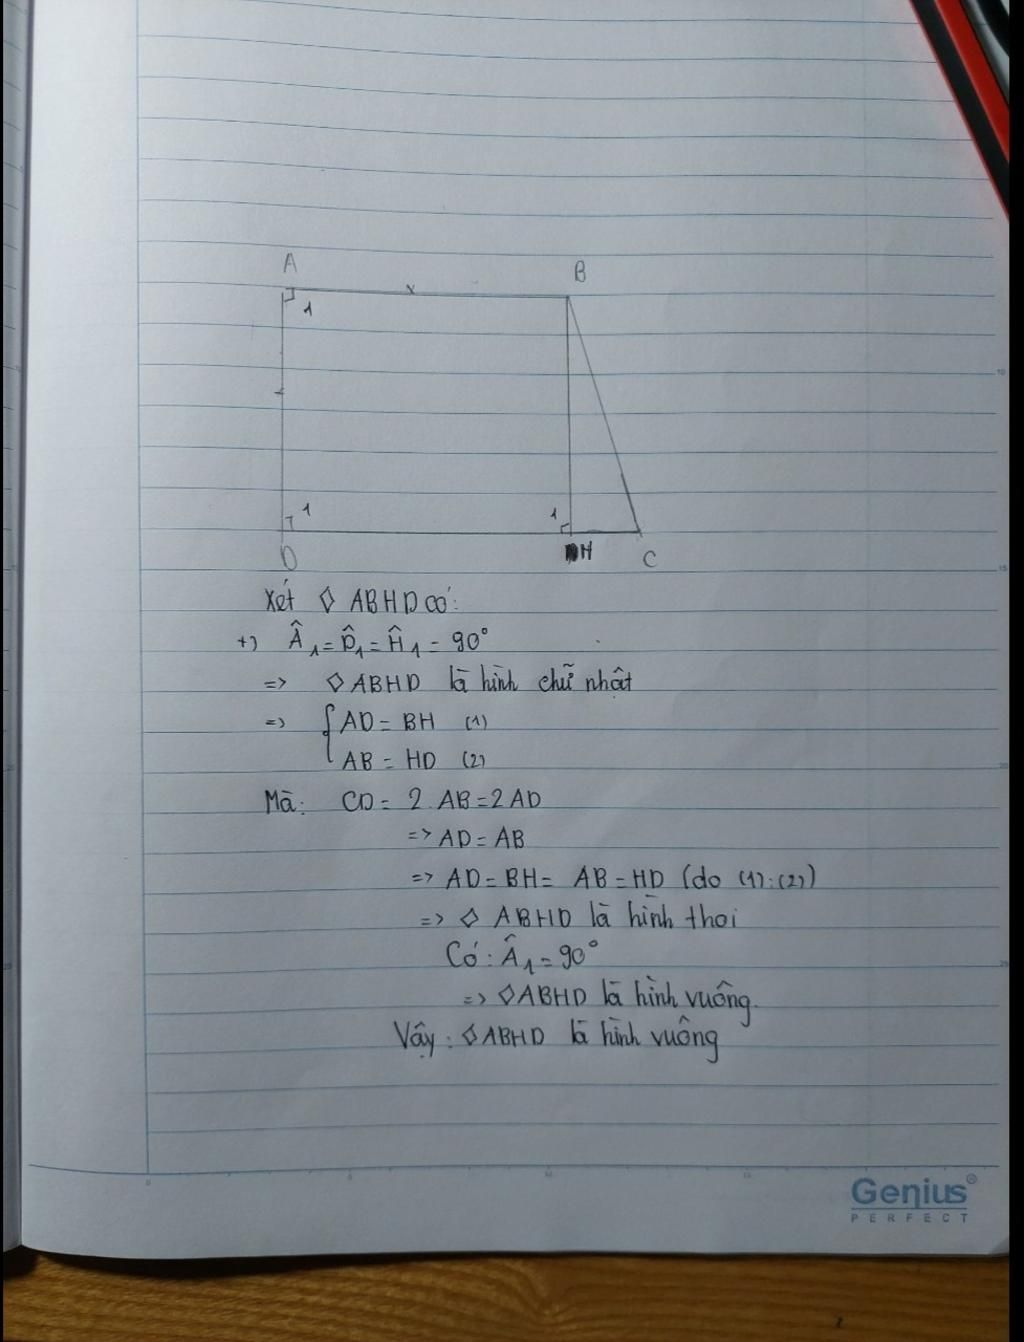 A
B
1
1
1
D
H
C
Xét ◊ ABHD có:
+) Â₁ = D̂₁ = Ĥ₁ = 90°
=> ◊ ABHD là hình chữ nhật
=> { AD = BH (1)
AB = HD (2)
Mà: CD = 2.AB = 2AD
=> AD = AB
=> AD = BH = AB = HD (do (1);(2))
=> ◊ ABHD là hình thoi
Có: Â₁ = 90°
=> ◊ ABHD là hình vuông.
Vậy: ◊ ABHD là hình vuông
Genius®
PERFECT